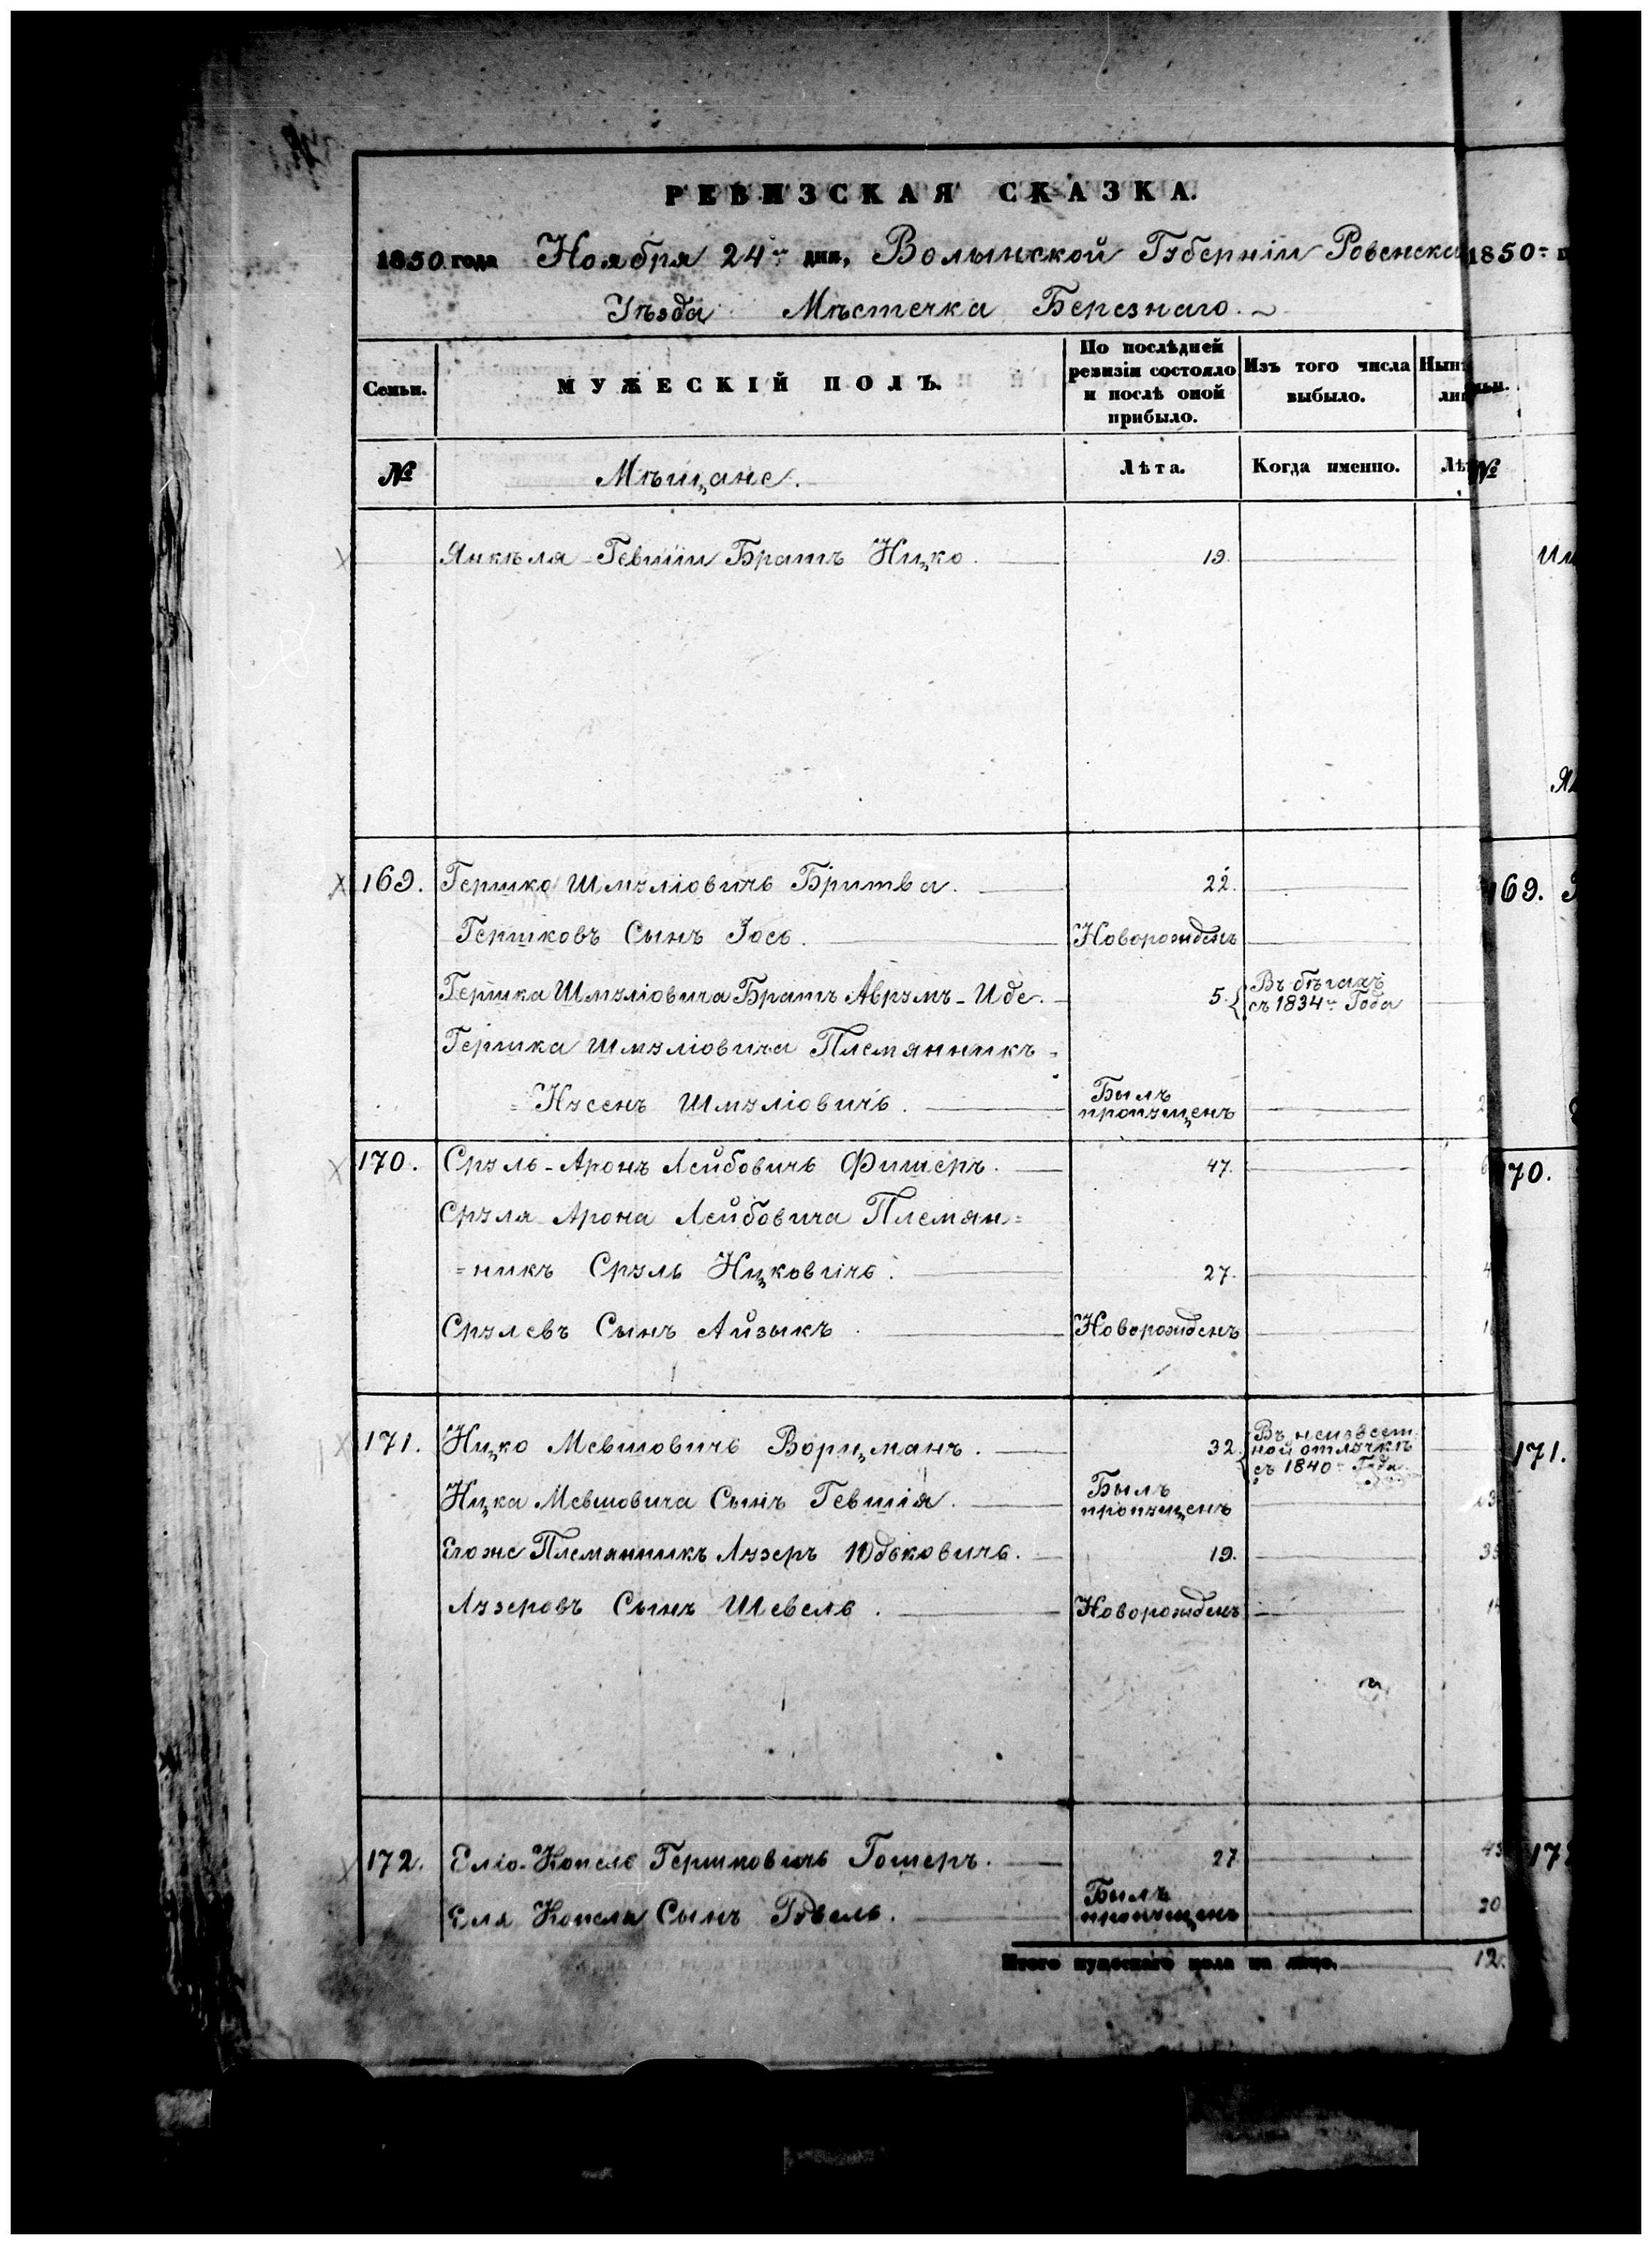 РЕВИЗСКАЯ СКАЗКА.
1850 года Ноября 24го дня, Волынской Губерніи Ровенска 1850=
Уѣзда Мѣстечка Березнаго.
Семьи. МУЖЕСКІЙ ПОЛЪ. По послѣдней ревизіи состояло и послѣ оной прибыло. Изъ того числа выбыло.
№ Мѣщане. Лѣта. Когда именно. №
Янкѣля-Гевшіи Братъ Ицко. 19.
169. Гершко Шмуліовичъ Бритва. 22. 169.
Гершковъ Сынъ Іось. Новорожденъ
Гершка Шмуліовича Братъ Аврумъ-Иде. 5. Въ бѣгахъ
съ 1834го Года
Гершка Шмуліовича Племянникъ
Нусенъ Шмуліовичъ. Былъ пропущенъ
170. Сруль-Аронъ Лейбовичъ Фишеръ. 47. 70.
Сруля Арона Лейбовича Племян=
=никъ Сруль Ицковичъ. 27.
Срулевъ Сынъ Айзыкъ. Новорожденъ
171. Ицко Мевшовичъ Ворцманъ. 32. Въ неизвест
ной отлучкѣ
съ 1840 Года 171.
Ицка Мевшовича Сынъ Гевшія. Былъ пропущенъ
Его же Племянникъ Лузеръ Юдьковичъ. 19.
Лузеровъ Сынъ Шевель. Новорожденъ
172. Еліо-Копель Гершковичъ Гошеръ. 27. 17
Еля Копеля Сынъ Былъ пропущенъ 20
Итого мужескаго пола на лицо. 12.